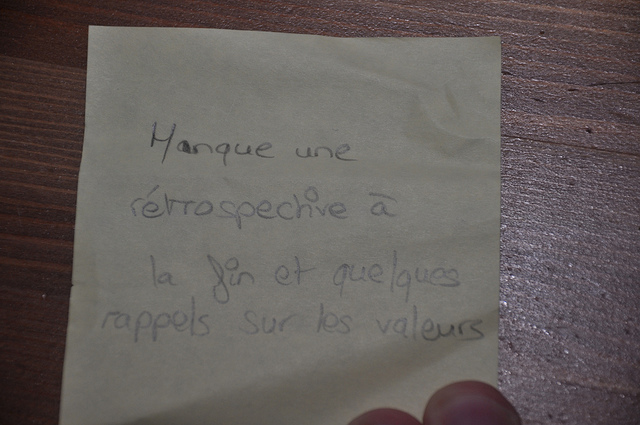 Manque une
rétrospective à
la fin et quelques
rappels sur les valeurs